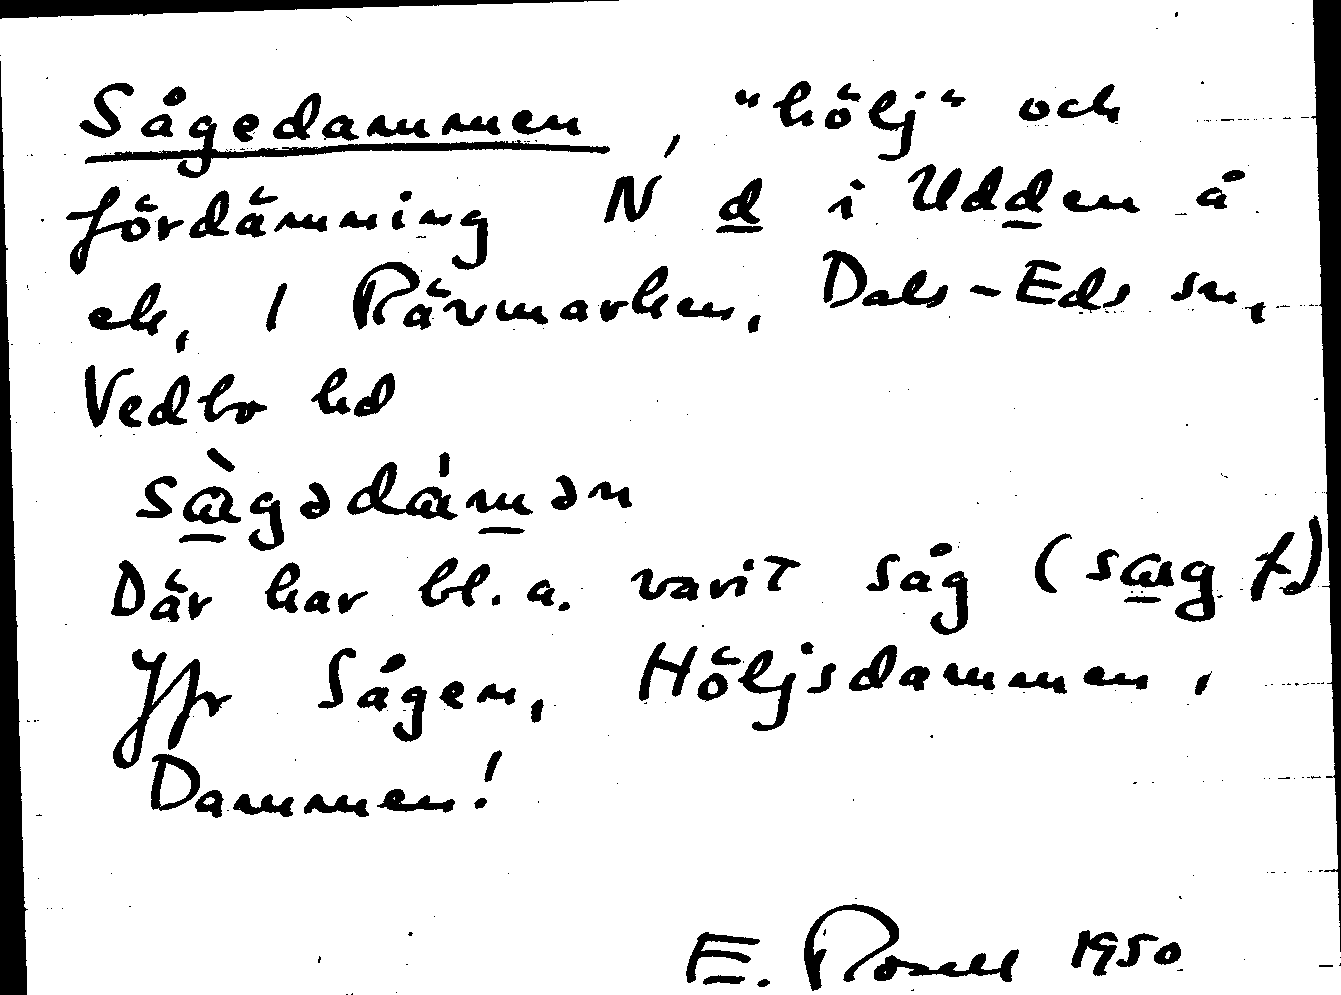 Sågedammen, "hölj" och
fördämning N d i Udden å
ek, 1 Rävmarken, Dals-Eds sn,
Vedbo hd
sàgədámən
Där har bl. a. varit såg (sag f.)
Jfr Sågen, Höljsdammen,
Dammen!
E. Rosell 1950